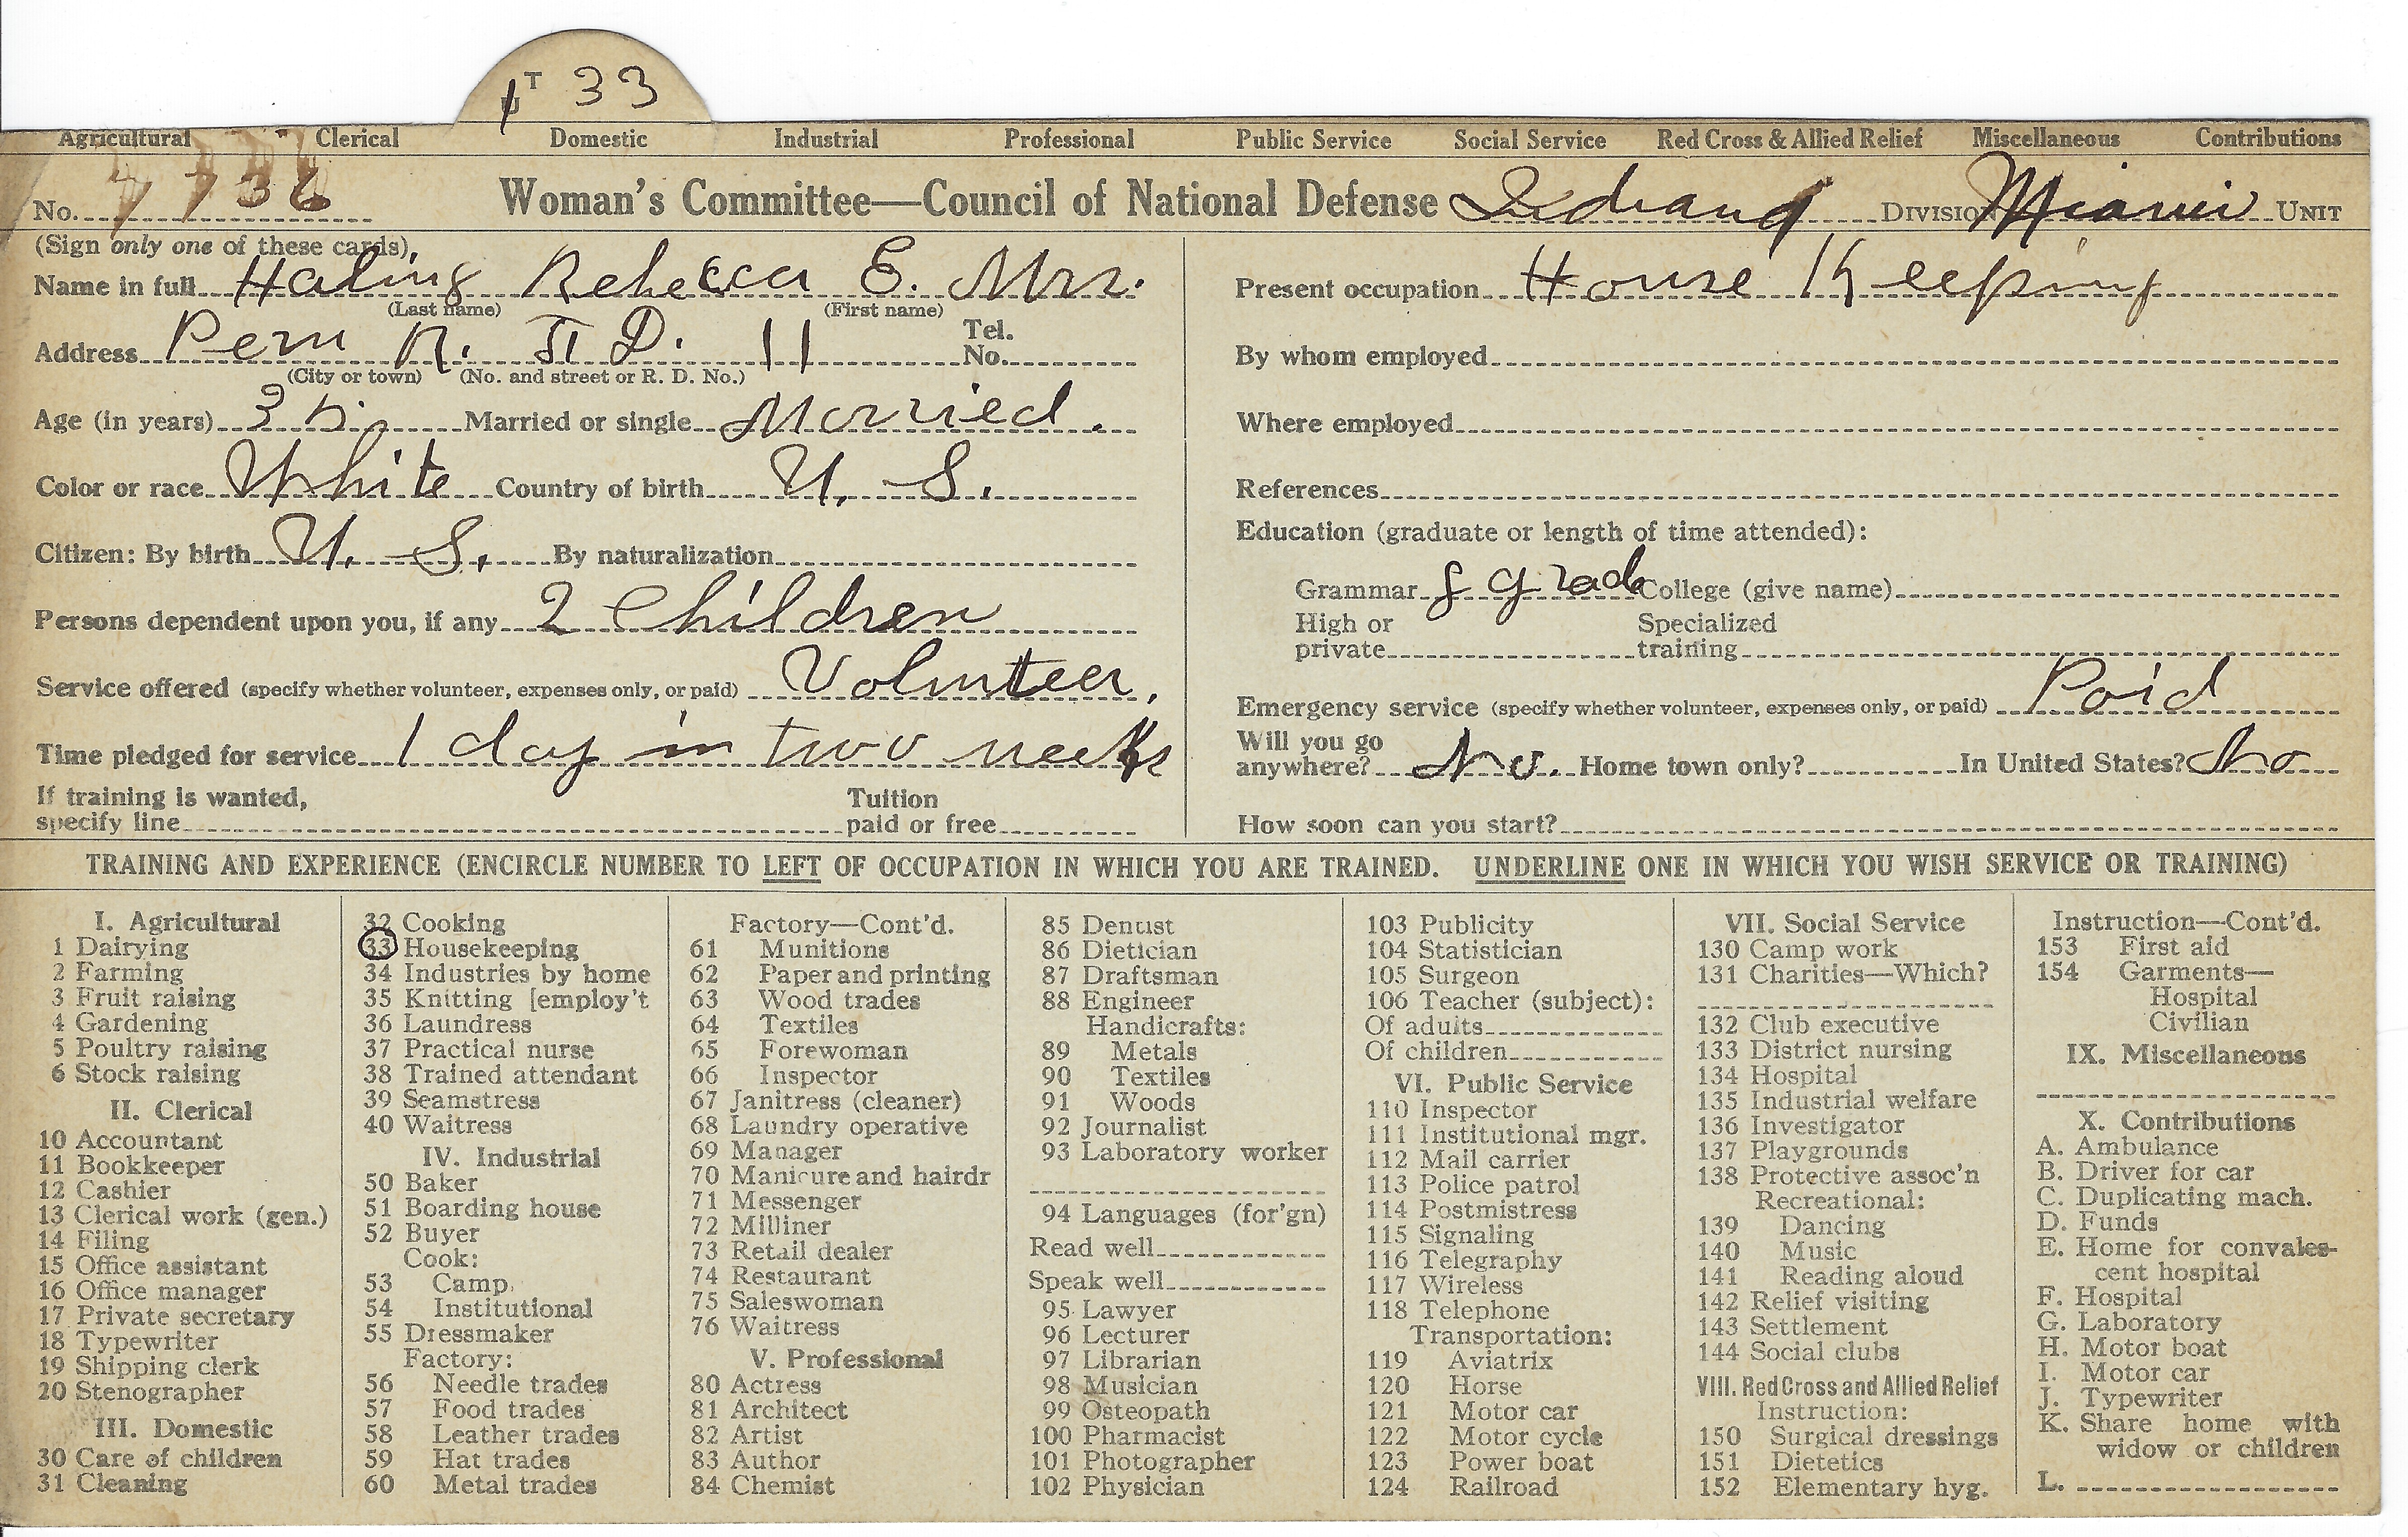 T 33
Agricultural Clerical Domestic Industrial Professional Public Service Social Service Red Cross & Allied Relief Miscellaneous Contributions
No. 7736 Woman's Committee—Council of National Defense Indiana DIVISION Miami UNIT
(Sign only one of these cards)
Name in full Haling Rebecca E. Mrs.
(Last name) (First name)
Address Peru R. F. D. 11 Tel. No.
(City or town) (No. and street or R. D. No.)
Age (in years) 35 Married or single Married.
Color or race White Country of birth U. S.
Citizen: By birth U. S. By naturalization
Persons dependent upon you, if any 2 Children
Service offered (specify whether volunteer, expenses only, or paid) Volunteer,
Time pledged for service 1 day in two weeks
If training is wanted, specify line Tuition paid or free
Present occupation House Keeping
By whom employed
Where employed
References
Education (graduate or length of time attended):
Grammar 8 grade College (give name)
High or private Specialized training
Emergency service (specify whether volunteer, expenses only, or paid) Paid
Will you go anywhere? No. Home town only? In United States? No
How soon can you start?
TRAINING AND EXPERIENCE (ENCIRCLE NUMBER TO LEFT OF OCCUPATION IN WHICH YOU ARE TRAINED. UNDERLINE ONE IN WHICH YOU WISH SERVICE OR TRAINING)
I. Agricultural
1 Dairying
2 Farming
3 Fruit raising
4 Gardening
5 Poultry raising
6 Stock raising
II. Clerical
10 Accountant
11 Bookkeeper
12 Cashier
13 Clerical work (gen.)
14 Filing
15 Office assistant
16 Office manager
17 Private secretary
18 Typewriter
19 Shipping clerk
20 Stenographer
III. Domestic
30 Care of children
31 Cleaning
32 Cooking
33 Housekeeping
34 Industries by home
35 Knitting [employ't
36 Laundress
37 Practical nurse
38 Trained attendant
39 Seamstress
40 Waitress
IV. Industrial
50 Baker
51 Boarding house
52 Buyer
Cook:
53 Camp
54 Institutional
55 Dressmaker
Factory:
56 Needle trades
57 Food trades
58 Leather trades
59 Hat trades
60 Metal trades
Factory—Cont'd.
61 Munitions
62 Paper and printing
63 Wood trades
64 Textiles
65 Forewoman
66 Inspector
67 Janitress (cleaner)
68 Laundry operative
69 Manager
70 Manicure and hairdr
71 Messenger
72 Milliner
73 Retail dealer
74 Restaurant
75 Saleswoman
76 Waitress
V. Professional
80 Actress
81 Architect
82 Artist
83 Author
84 Chemist
85 Dentist
86 Dietician
87 Draftsman
88 Engineer
Handicrafts:
89 Metals
90 Textiles
91 Woods
92 Journalist
93 Laboratory worker
94 Languages (for'gn)
Read well
Speak well
95 Lawyer
96 Lecturer
97 Librarian
98 Musician
99 Osteopath
100 Pharmacist
101 Photographer
102 Physician
103 Publicity
104 Statistician
105 Surgeon
106 Teacher (subject):
Of adults
Of children
VI. Public Service
110 Inspector
111 Institutional mgr.
112 Mail carrier
113 Police patrol
114 Postmistress
115 Signaling
116 Telegraphy
117 Wireless
118 Telephone
Transportation:
119 Aviatrix
120 Horse
121 Motor car
122 Motor cycle
123 Power boat
124 Railroad
VII. Social Service
130 Camp work
131 Charities—Which?
132 Club executive
133 District nursing
134 Hospital
135 Industrial welfare
136 Investigator
137 Playgrounds
138 Protective assoc'n
Recreational:
139 Dancing
140 Music
141 Reading aloud
142 Relief visiting
143 Settlement
144 Social clubs
VIII. Red Cross and Allied Relief
Instruction:
150 Surgical dressings
151 Dietetics
152 Elementary hyg.
Instruction—Cont'd.
153 First aid
154 Garments—
Hospital
Civilian
IX. Miscellaneous
X. Contributions
A. Ambulance
B. Driver for car
C. Duplicating mach.
D. Funds
E. Home for convales-
cent hospital
F. Hospital
G. Laboratory
H. Motor boat
I. Motor car
J. Typewriter
K. Share home with
widow or children
L.